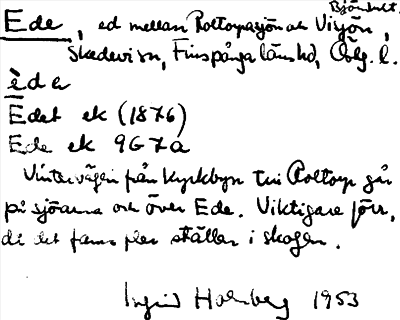 Ede, ed mellan Roltorpasjön och Visjön,
Skedevi sn, Finspånga länshd, Östg. l.
èda
Edet ek (1876)
Ede ek 9G7a
Vintervägen från kyrkbyn till Roltorp går
på sjöarna och över Ede. Viktigare förr,
då det fanns fler ställen i skogen.
Ingrid Holmberg 1953